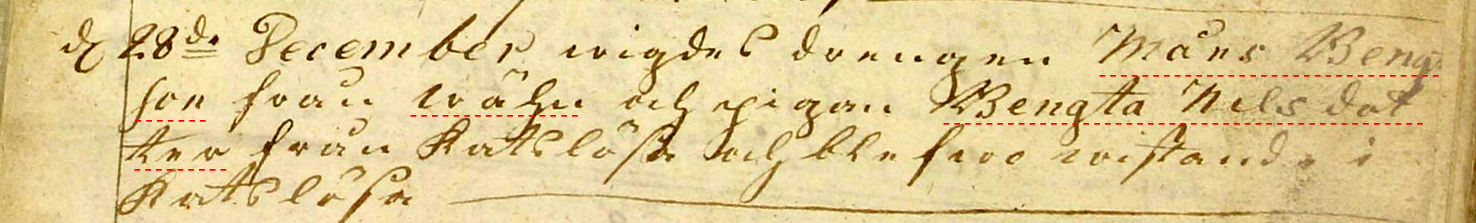 d 28de December wigdes drengen Måns Beng
son från Wähn och pigan Bengta Nils dot
ter från Katslösa och blefwo wistande i
Katslösa